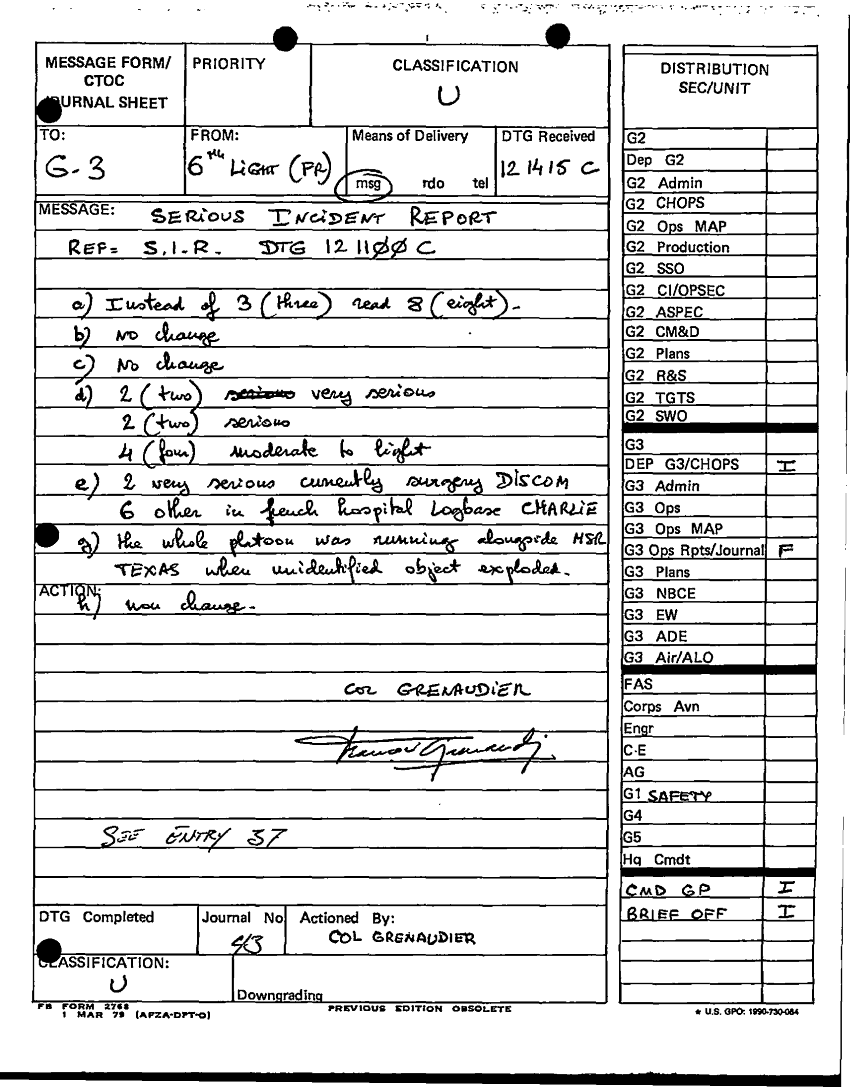 MESSAGE FORM/
CTOC
JOURNAL SHEET
PRIORITY
CLASSIFICATION
U
TO:
G-3
FROM:
6TH LIGHT (FR)
Means of Delivery
msg rdo tel
DTG Received
12 1415 C
MESSAGE: SERIOUS INCIDENT REPORT
REF= S.I.R. DTG 12 11ØØ C
a) Instead of 3 (three) read 8 (eight).
b) No change
c) No change
d) 2 (two) serious very serious
2 (two) serious
4 (four) moderate to light
e) 2 very serious currently surgery DISCOM
6 other in french hospital Logbase CHARLIE
g) the whole platoon was running alongside MSR
TEXAS when unidentified object exploded.
ACTION:
h) non change.
COL GRENAUDIER
SEE ENTRY 37
DTG Completed
Journal No
43
Actioned By:
COL GRENAUDIER
CLASSIFICATION:
U
Downgrading
FB FORM 2768
1 MAR 79 (AFZA-DPT-O)
PREVIOUS EDITION OBSOLETE
DISTRIBUTION
SEC/UNIT
G2
Dep G2
G2 Admin
G2 CHOPS
G2 Ops MAP
G2 Production
G2 SSO
G2 CI/OPSEC
G2 ASPEC
G2 CM&D
G2 Plans
G2 R&S
G2 TGTS
G2 SWO
G3
DEP G3/CHOPS I
G3 Admin
G3 Ops
G3 Ops MAP
G3 Ops Rpts/Journal F
G3 Plans
G3 NBCE
G3 EW
G3 ADE
G3 Air/ALO
FAS
Corps Avn
Engr
C-E
AG
G1 SAFETY
G4
G5
Hq Cmdt
CMD GP I
BRIEF OFF I
* U.S. GPO: 1990-730-084